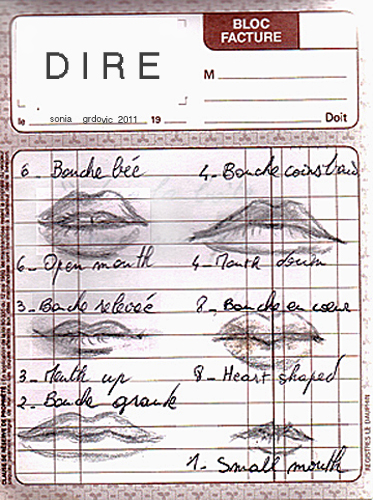 BLOC
FACTURE
DIRE
M
le sonia grdovic 2011 19 Doit
6 - Bouche bée
4 - Bouche coins bas
6 - Open mouth
4 - Mouth down
3 - Bouche relevée
8 - Bouche en cœur
3 - Mouth up
8 - Heart shaped
2 - Bouche grande
1 - Small mouth
REGISTRES LE DAUPHIN